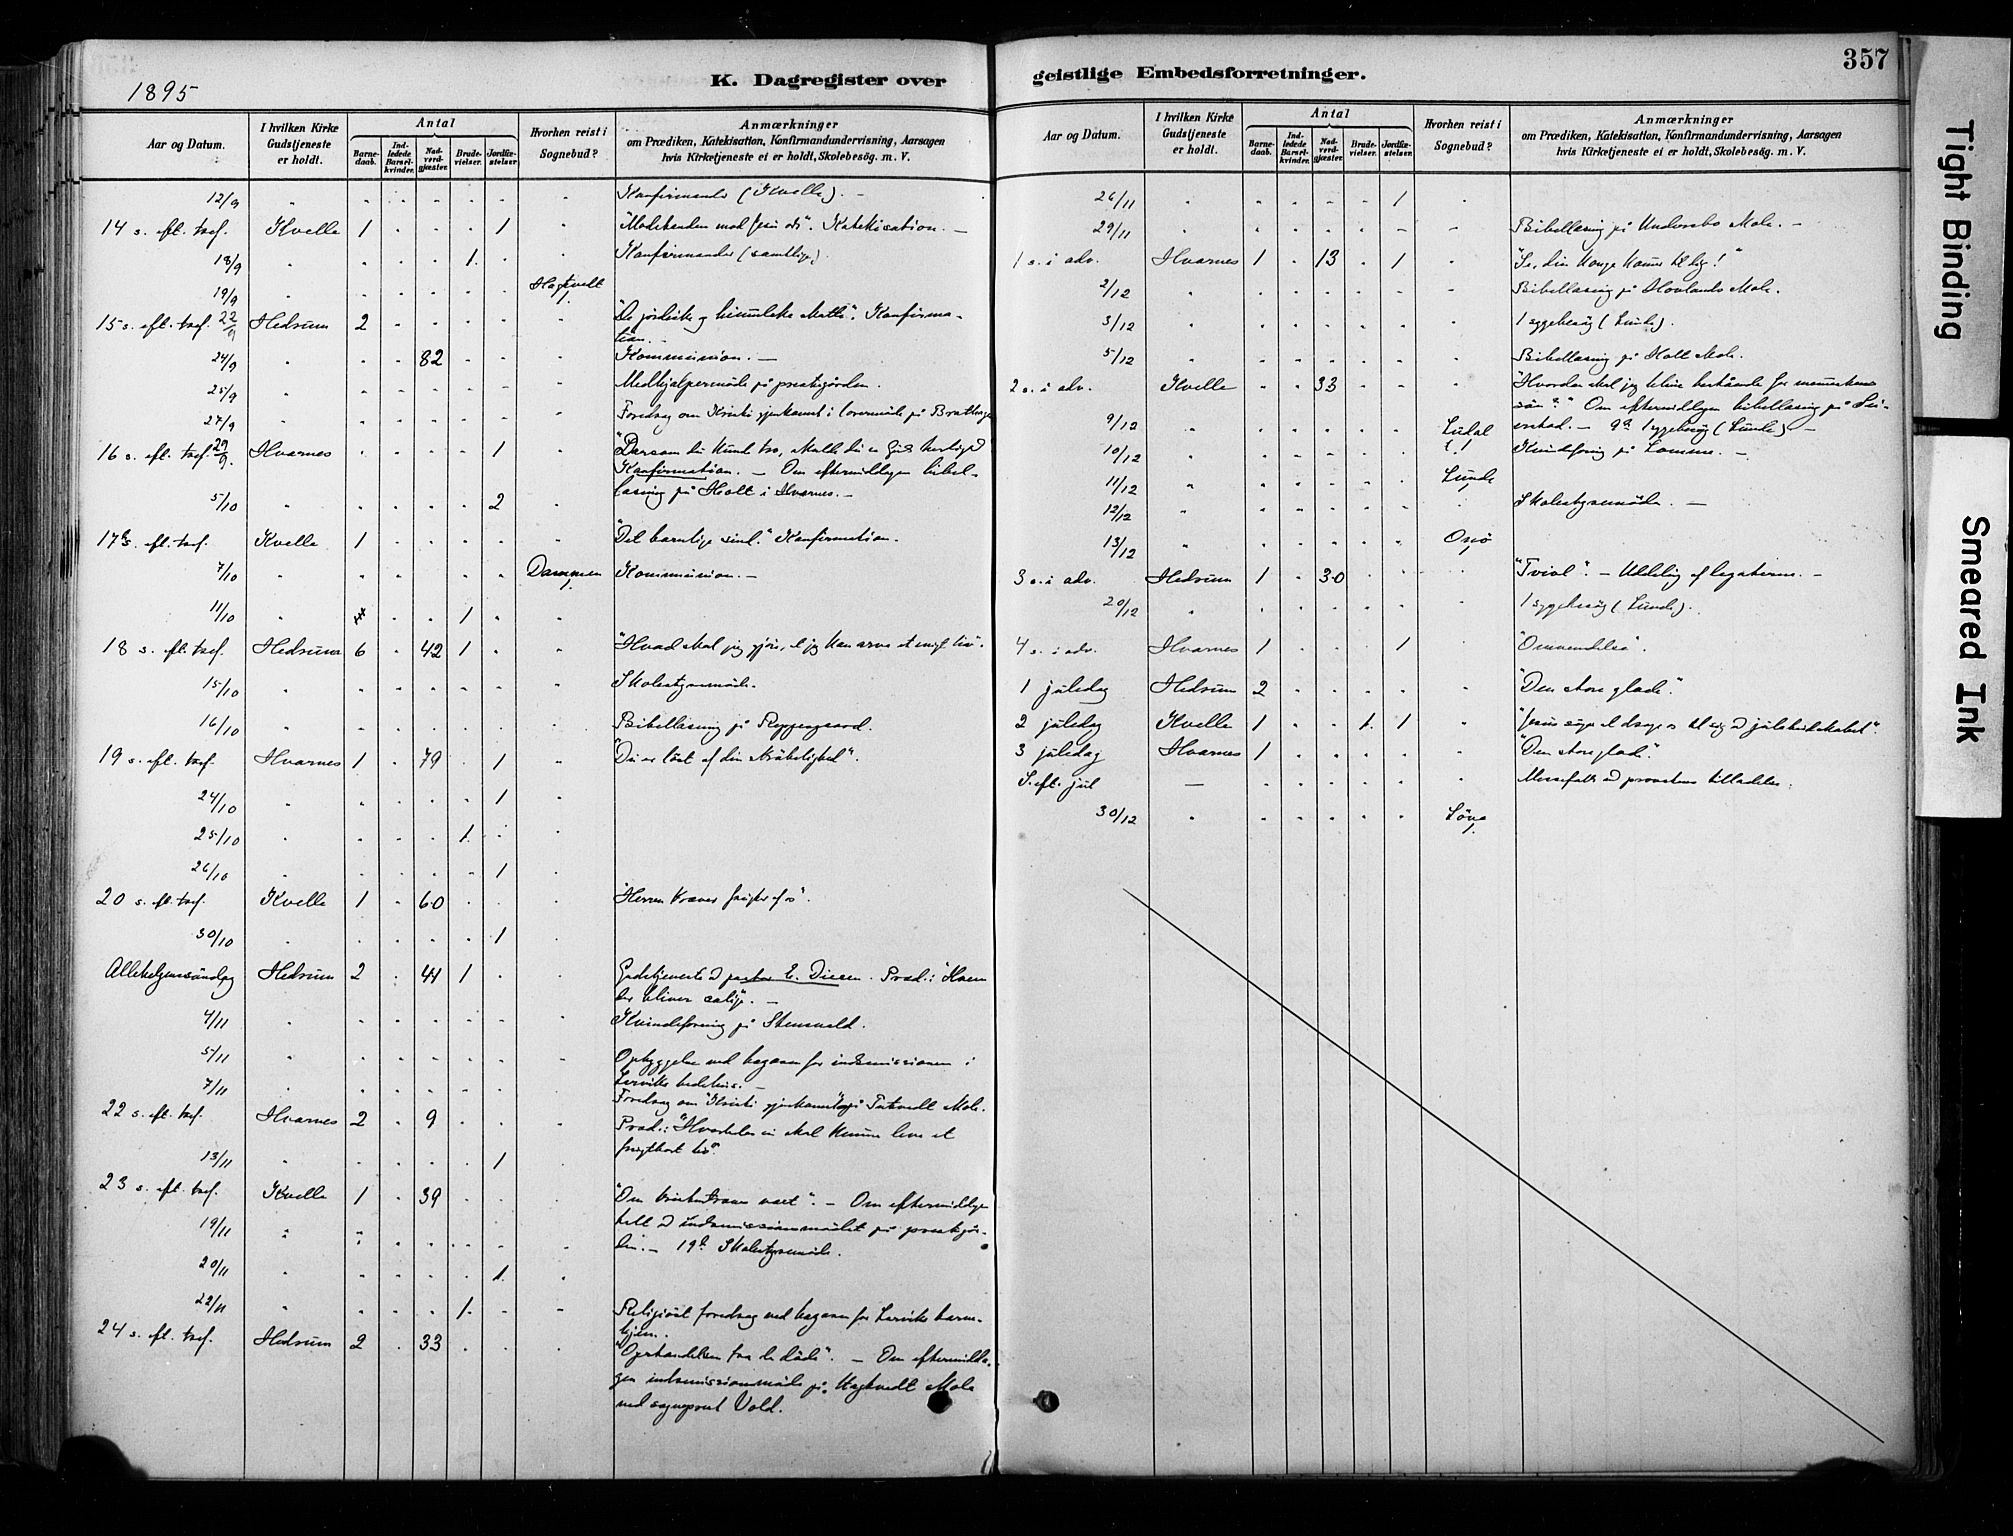 1895
K. Dagregister over geistlige Embedsforretninger.
357
Aar og Datum.
I hvilken Kirke Gudstjeneste er holdt.
Antal
Barnedaab.
Indledede Barselkvinder.
Nadverdgjester.
Brudevielser.
Jordfæstelser.
Hvorhen reist i Sognebud?
Anmærkninger
om Prædiken, Katekisation, Konfirmandundervisning, Aarsagen
hvis Kirketjeneste ei er holdt, Skolebesøg. m. V.
12/9 Konfirmander (Kvelle). —
14 s. eft. tref. Kvelle 1 1 Katekisation. —
18/9 1 Konfirmander (samtlige).
19/9 Hagtvedt 1
15 s. eft. tref. 22/9 Hedrum 2 "De jordiske og himmelske skatte". Konfirma-
tion. —
24/9 82 Kommunion. —
25/9 Medhjælpermöde på prestegården.
27/9 Foredrag om Kristi gjenkomst i lovermöde på
16 s. eft. tref. 29/9. Hvarnes 1 "Dersom du kunde tro, skulde du se Guds herlighed
Konfirmation. — Om eftermiddagen bibel-
læsning på Holt i Hvarnes. —
5/10 2
17de s. eft. tref. Kvelle 1 "Det barnlige sind." Konfirmation.
7/10 Dammen 1 Kommunion. —
11/10 1
18 s. eft. tref. Hedrum 6 42 1 "Hvad skal jeg gjöre, at jeg kan arve et evigt liv".
15/10 Skolestyremöde.
16/10 Bibellæsning på Roppergaard.
19 s. eft. tref. Hvarnes 1 79 1 "Du er löst af din skröbelighed".
24/10 1
25/10 1
26/10 1
20 s. eft. tref. Kvelle 1 60 "Herren kræver frugter af os".
30/10 1
Allehelgensöndag Hedrum 2 44 1 Gudstjeneste ved pastor E. Diesen. Præd.: "Hvem
der bliver salige". —
4/11 Kvindeforening på Stensvold.
5/11 Opbyggelse ved basaren for indremissionen i
Larviks bedehus. —
7/11 Foredrag om "Kristi gjenkomst" på Tutvedt skole.
22 s. eft. tref. Hvarnes 2 9 Præd.: "Hvorledes vi skal kunne leve et
frugtbart liv".
13/11 1
23 s. eft. tref. Kvelle 1 39 "Om kristenkravet". — Om eftermiddagen
talt ved indremissionsmödet på prestegår-
den. — 19de Skolestyremöde.
19/11
20/11 1
22/11 1 Religiöst foredrag ved basaren for Larviks barne-
hjem.
24 s. eft. tref. Hedrum 2 33 "Opstandelsen fra de döde". — Om eftermidda-
gen indremissionsmöde på Hagtvedt skole
med sogneprest Vold.
Aar og Datum.
I hvilken Kirke Gudstjeneste er holdt.
Antal
Barnedaab.
Indledede Barselkvinder.
Nadverdgjester.
Brudevielser.
Jordfæstelser.
Hvorhen reist i Sognebud?
Anmærkninger
om Prædiken, Katekisation, Konfirmandundervisning, Aarsagen
hvis Kirketjeneste ei er holdt, Skolebesøg. m. V.
26/11 1
29/11 Bibellæsning på Undersbo skole. —
1 s. i adv. Hvarnes 1 13 1 "Se, din konge kommer til dig!"
2/12 Bibellæsning på Hovlands skole.
3/12 1 sygebesög (Lunde).
5/12 Bibellæsning på Holt skole.
2 s. i adv. Kvelle 33 "Hvordan skal jeg blive bestående for menneskens
sön?" Om eftermiddagen bibellæsning på
9/12 9de 1 sygebesög (Lunde) —
10/12 Kvindeforening på Lomme. —
11/12 Lunde
12/12 Skolestyremöde. —
13/12
3 s. i adv. Hedrum 1 30 "Tvivl". — Uddeling af legaterne. —
20/12 1 sygebesög (Lunde).
4 s. i adv. Hvarnes 1 1 "Omvendelse".
1 juledag Hedrum 2 "Den store glæde."
2 juledag Kvelle 1 1 1 "Jesus söger at drage os til sig ved julebudskabet".
3 juledag Hvarnes 1 "Den store glæde".
S. eft. jul — Messefald ved provstens tilladelse.
30/12
Tight Binding
Smeared Ink